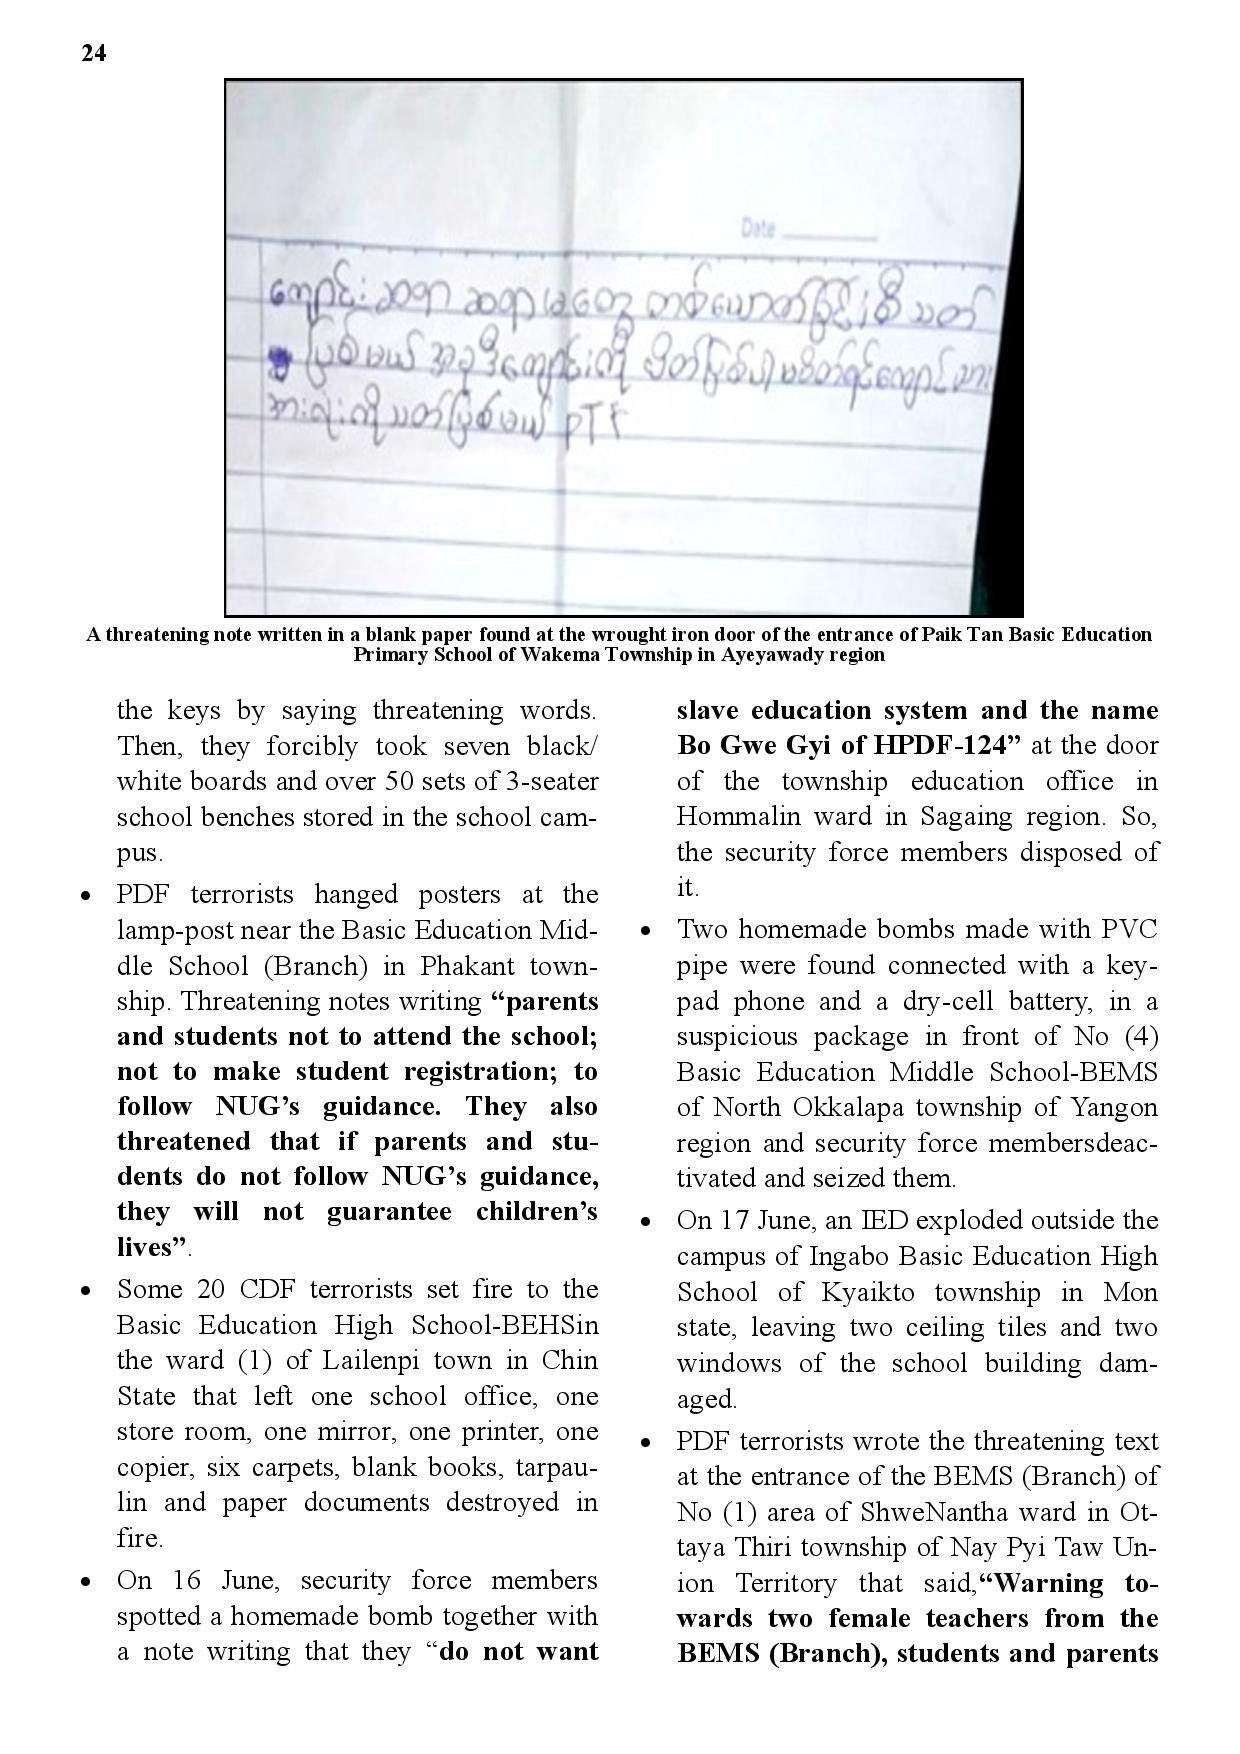 24
Date
ကျောင်း ဆရာ ဆရာမတွေ တစ်ယောက်ပြီးစီ သတ်
ပြစ်မယ် အခုဒီကျောင်းကို ပိတ်ပြစ်ပါ မပိတ်ရင်ကျောင်သား
အားလုံးကို သတ်ပြစ်မယ် PTF
A threatening note written in a blank paper found at the wrought iron door of the entrance of Paik Tan Basic Education
Primary School of Wakema Township in Ayeyawady region
the keys by saying threatening words.
Then, they forcibly took seven black/
white boards and over 50 sets of 3-seater
school benches stored in the school cam-
pus.
• PDF terrorists hanged posters at the
lamp-post near the Basic Education Mid-
dle School (Branch) in Phakant town-
ship. Threatening notes writing “parents
and students not to attend the school;
not to make student registration; to
follow NUG’s guidance. They also
threatened that if parents and stu-
dents do not follow NUG’s guidance,
they will not guarantee children’s
lives”.
• Some 20 CDF terrorists set fire to the
Basic Education High School-BEHSin
the ward (1) of Lailenpi town in Chin
State that left one school office, one
store room, one mirror, one printer, one
copier, six carpets, blank books, tarpau-
lin and paper documents destroyed in
fire.
• On 16 June, security force members
spotted a homemade bomb together with
a note writing that they “do not want
slave education system and the name
Bo Gwe Gyi of HPDF-124” at the door
of the township education office in
Hommalin ward in Sagaing region. So,
the security force members disposed of
it.
• Two homemade bombs made with PVC
pipe were found connected with a key-
pad phone and a dry-cell battery, in a
suspicious package in front of No (4)
Basic Education Middle School-BEMS
of North Okkalapa township of Yangon
region and security force membersdeac-
tivated and seized them.
• On 17 June, an IED exploded outside the
campus of Ingabo Basic Education High
School of Kyaikto township in Mon
state, leaving two ceiling tiles and two
windows of the school building dam-
aged.
• PDF terrorists wrote the threatening text
at the entrance of the BEMS (Branch) of
No (1) area of ShweNantha ward in Ot-
taya Thiri township of Nay Pyi Taw Un-
ion Territory that said,“Warning to-
wards two female teachers from the
BEMS (Branch), students and parents